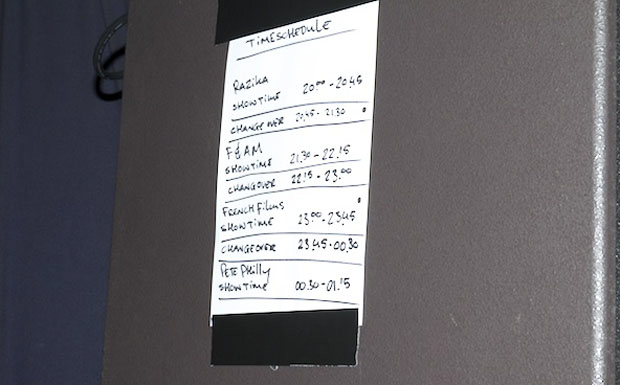 TIMESCHEDULE
RAZIKA
SHOWTIME 20.00 - 20.45
CHANGEOVER 20.45 - 21.30
F&AM
SHOWTIME 21.30 - 22.15
CHANGEOVER 22.15 - 23.00
FRENCH FILMS
SHOWTIME 23.00 - 23.45
CHANGEOVER 23.45 - 00.30
PETE PHILLY
SHOWTIME 00.30 - 01.15